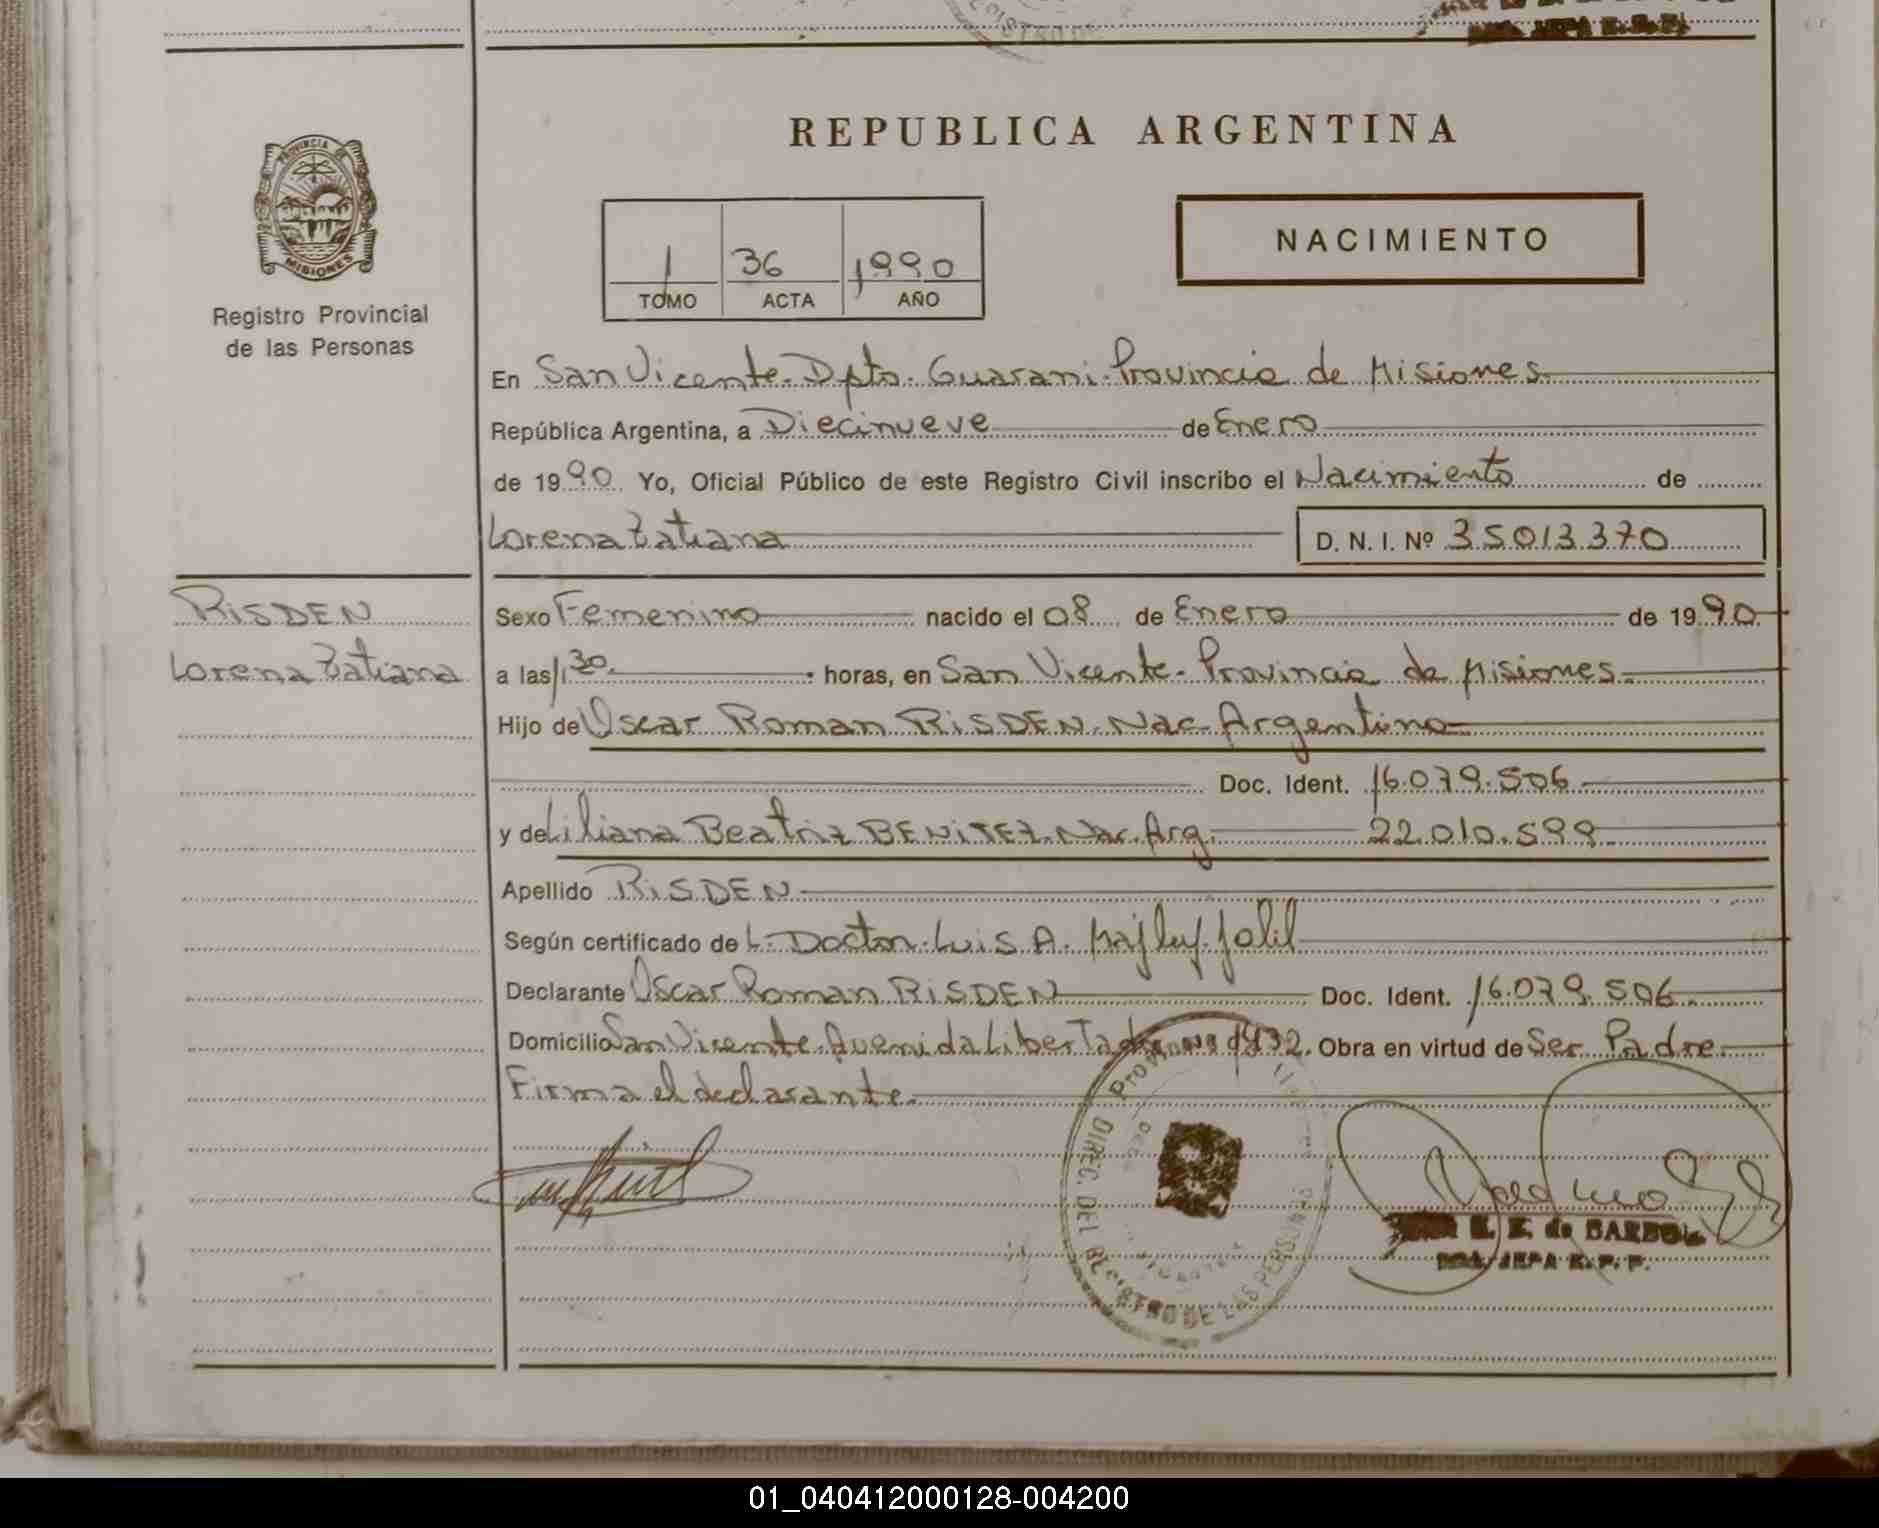 REPUBLICA ARGENTINA
PROVINCIA DE
MISIONES
Registro Provincial
de las Personas
1 36 1990
TOMO ACTA AÑO
NACIMIENTO
En San Vicente. Dpto. Guarani. Provincia de Misiones.
República Argentina, a Diecinueve de Enero
de 1990 Yo, Oficial Público de este Registro Civil inscribo el Nacimiento de
Lorena Tatiana D. N. I. Nº 35013370
RISDEN
Lorena Tatiana
Sexo Femenino nacido el 08 de Enero de 1990
a las 1,30 horas, en San Vicente. Provincia de Misiones.
Hijo de Oscar Roman RISDEN. Nac. Argentino
Doc. Ident. 16.079.506
y de Liliana Beatriz BENITEZ. Nac. Arg. 22.010.599
Apellido RISDEN
Según certificado de L. Doctor. Luis A. Jalil
Declarante Oscar Roman RISDEN Doc. Ident. 16.079.506.
Domicilio San Vicente. Avenida Libertador Obra en virtud de Ser Padre.
Firma el declarante.
DIREC. DEL REGISTRO DE LAS PERSONAS
E. de
JEFA R. P. P.
01_040412000128-004200